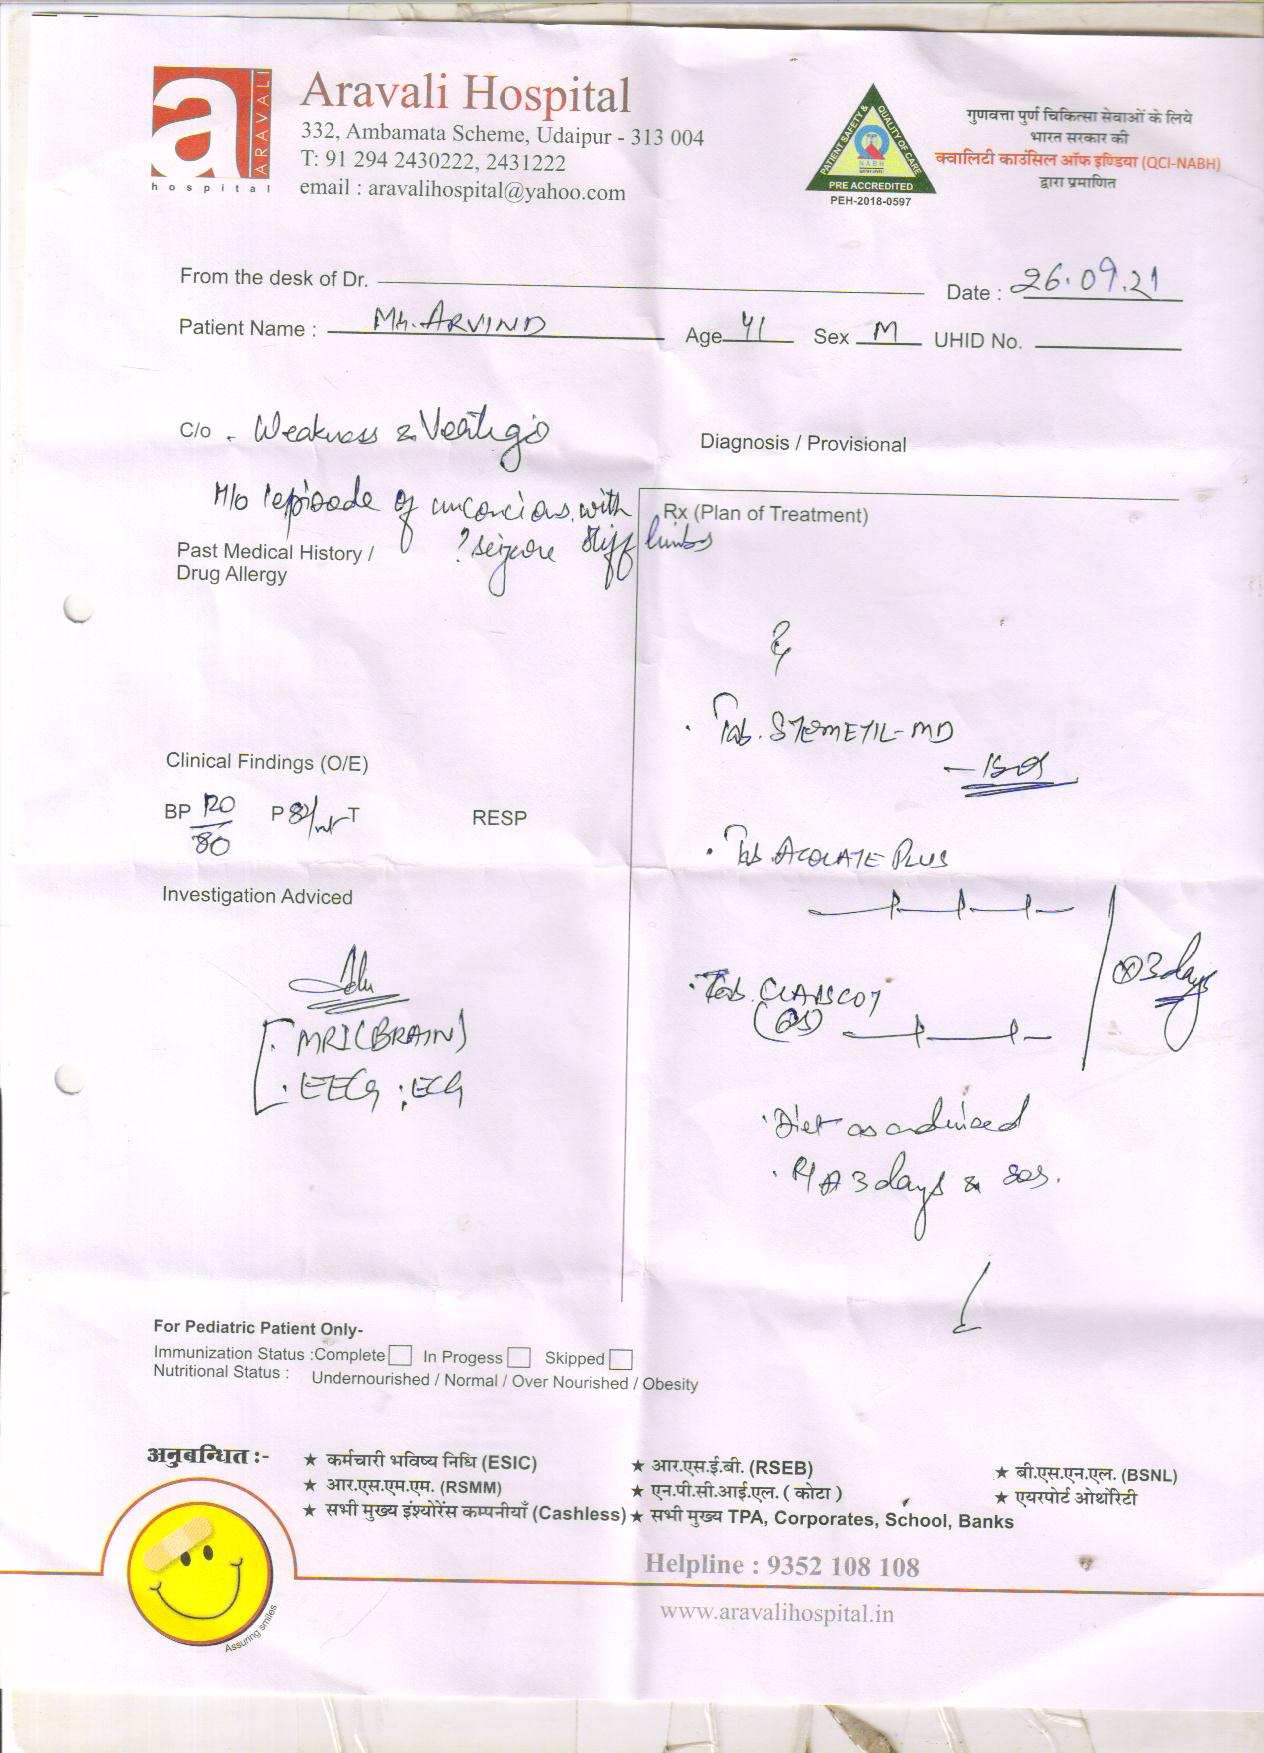 a ARAVALI
hospital
Aravali Hospital
332, Ambamata Scheme, Udaipur - 313 004
T: 91 294 2430222, 2431222
email : aravalihospital@yahoo.com
PATIENT SAFETY & QUALITY OF CARE
NABH
PRE ACCREDITED
PEH-2018-0597
गुणवत्ता पुर्ण चिकित्सा सेवाओं के लिये
भारत सरकार की
क्वालिटी काउंसिल ऑफ इण्डिया (QCI-NABH)
द्वारा प्रमाणित
From the desk of Dr.
Date : 26.09.21
Patient Name : Mr. ARVIND Age 41 Sex M UHID No.
C/o - Weakness & Vertigo
Diagnosis / Provisional
H/o 1 episode of unconcious with
? seizure stiff limbs
Rx (Plan of Treatment)
Past Medical History /
Drug Allergy
Rx
. Tab. STEMETIL-MD
- SOS
Clinical Findings (O/E)
BP 120/80 P 82/mt T RESP
. Tab. ACOLATE PLUS
Investigation Adviced
x 3 days
Adv
. MRI (BRAIN)
. EEG ; ECG
. Tab.
. Diet as advised
. R/A 3 days & sos.
For Pediatric Patient Only-
Immunization Status :Complete In Progess Skipped
Nutritional Status : Undernourished / Normal / Over Nourished / Obesity
अनुबन्धित :-
★ कर्मचारी भविष्य निधि (ESIC) ★ आर.एस.ई.बी. (RSEB) ★ बी.एस.एन.एल. (BSNL)
★ आर.एस.एम.एम. (RSMM) ★ एन.पी.सी.आई.एल. ( कोटा ) ★ एयरपोर्ट ओथोरिटी
★ सभी मुख्य इंश्योरेंस कम्पनीयाँ (Cashless) ★ सभी मुख्य TPA, Corporates, School, Banks
Helpline : 9352 108 108
www.aravalihospital.in
Assuring smiles